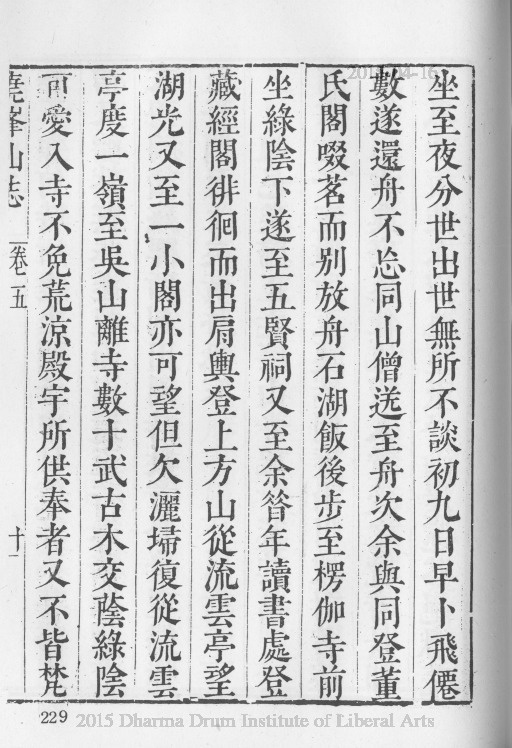 坐至夜分世出世無所不談初九日早卜飛僊
數遂還舟不忘同山僧送至舟次余與同登董
氏閣啜茗而别放舟石湖飯後步至楞伽寺前
坐綠陰下遂至五賢祠又至余昝年讀書處登
藏經閣徘徊而出肩輿登上方山從流雲亭望
湖光又至一小閣亦可望但欠灑埽復從流雲
亭度一嶺至吳山離寺數十武古木交蔭綠陰
可愛入寺不免荒涼殿宇所供奉者又不皆梵
堯峯山志 卷五 十一
229
2015 Dharma Drum Institute of Liberal Arts